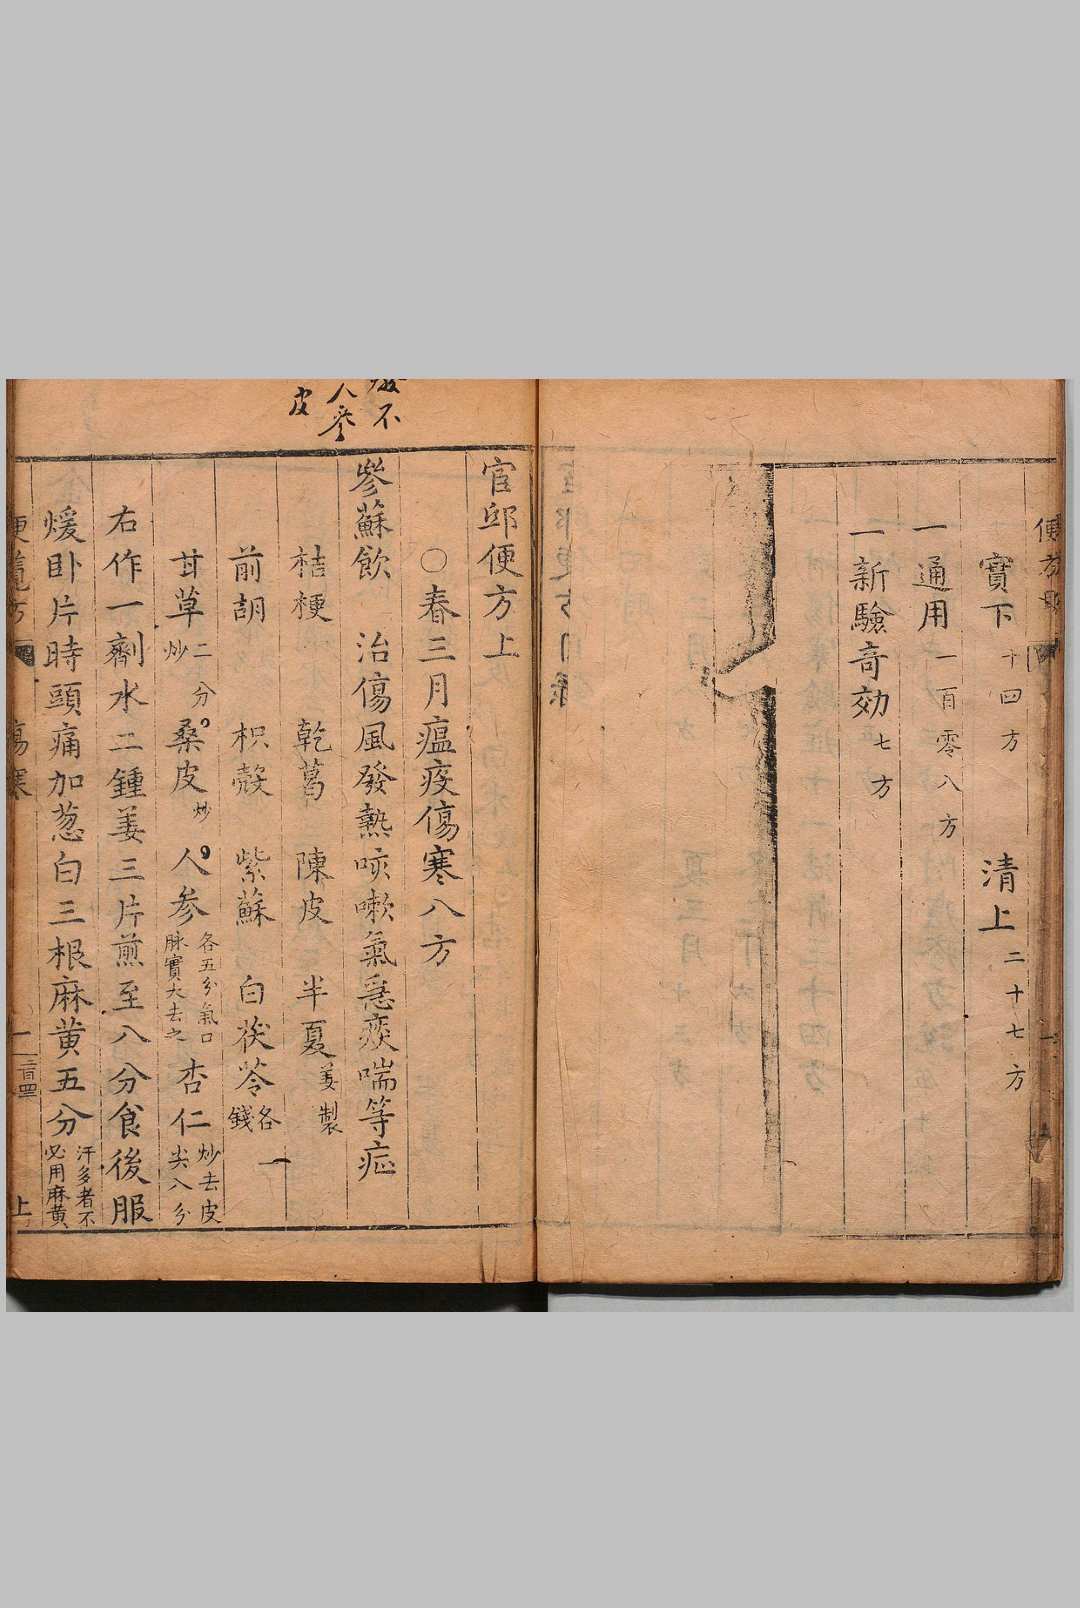 便方目
實下十四方 清上二十七方
一通用一百零八方
一新驗竒効七方
官邸便方上
○春三月瘟疫傷寒八方
參蘇飲 治傷風發熱咳嗽氣急痰喘等症
桔梗 乾葛 陳皮 半夏姜製
前胡 枳殼 紫蘇 白茯苓各一錢
甘草炒二分 桑皮炒 人参各五分氣口脉實大去之 杏仁炒去皮尖八分
右作一劑水二鍾姜三片煎至八分食後服
煖卧片時頭痛加葱白三根麻黄五分汗多者不必用麻黄
便覽方 傷寒 一 上
不
人參
皮